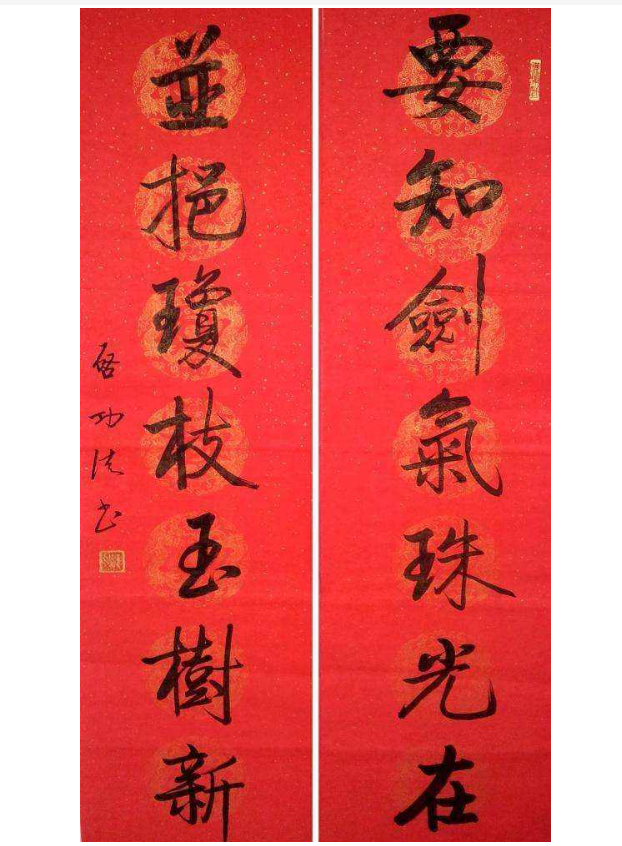 要知劍氣珠光在
並挹瓊枝玉樹新
啓功法書